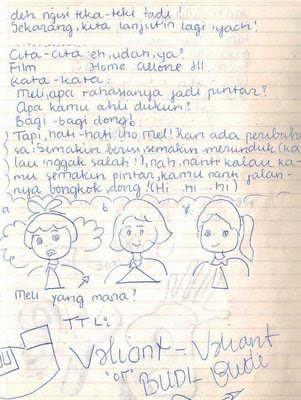 deh ngisi teka-teki tadi!
Sekarang, kita lanjutin lagi, yach!
Cita-cita: eh, udah, ya?
Film : Home Allone III
Kata-kata:
Meli, apa rahasianya jadi pintar?
Apa kamu ahli dukun?
Bagi-bagi dong!
Tapi, hati-hati lho mel! kan ada peribaha
sa: Semakin berisi, semakin merunduk (ka
lau nggak salah!), nah, nanti kalau ka-
mu semakin pintar, kamu nanti jalan-
nya bongkok, dong! (Hi ... hi ... hi)
a b c
Meli yang mana?
TTL:
Valiant - Valiant
"or"
BUDI - Budi